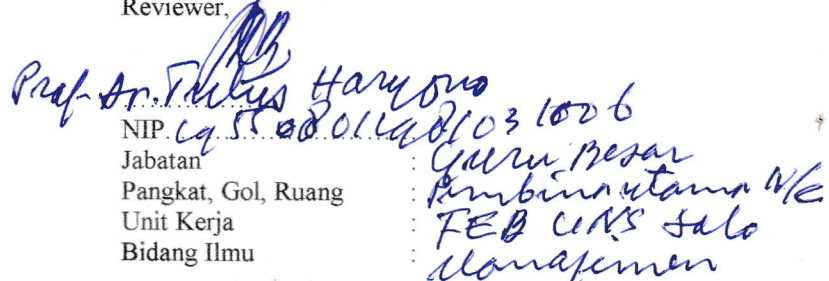 Reviewer,
Prof. Dr. Tulus Haryono
NIP. 195508011981031006
Jabatan : Guru Besar
Pangkat, Gol, Ruang : Pembina utama IV/e
Unit Kerja : FEB UNS Solo
Bidang Ilmu : Manajemen